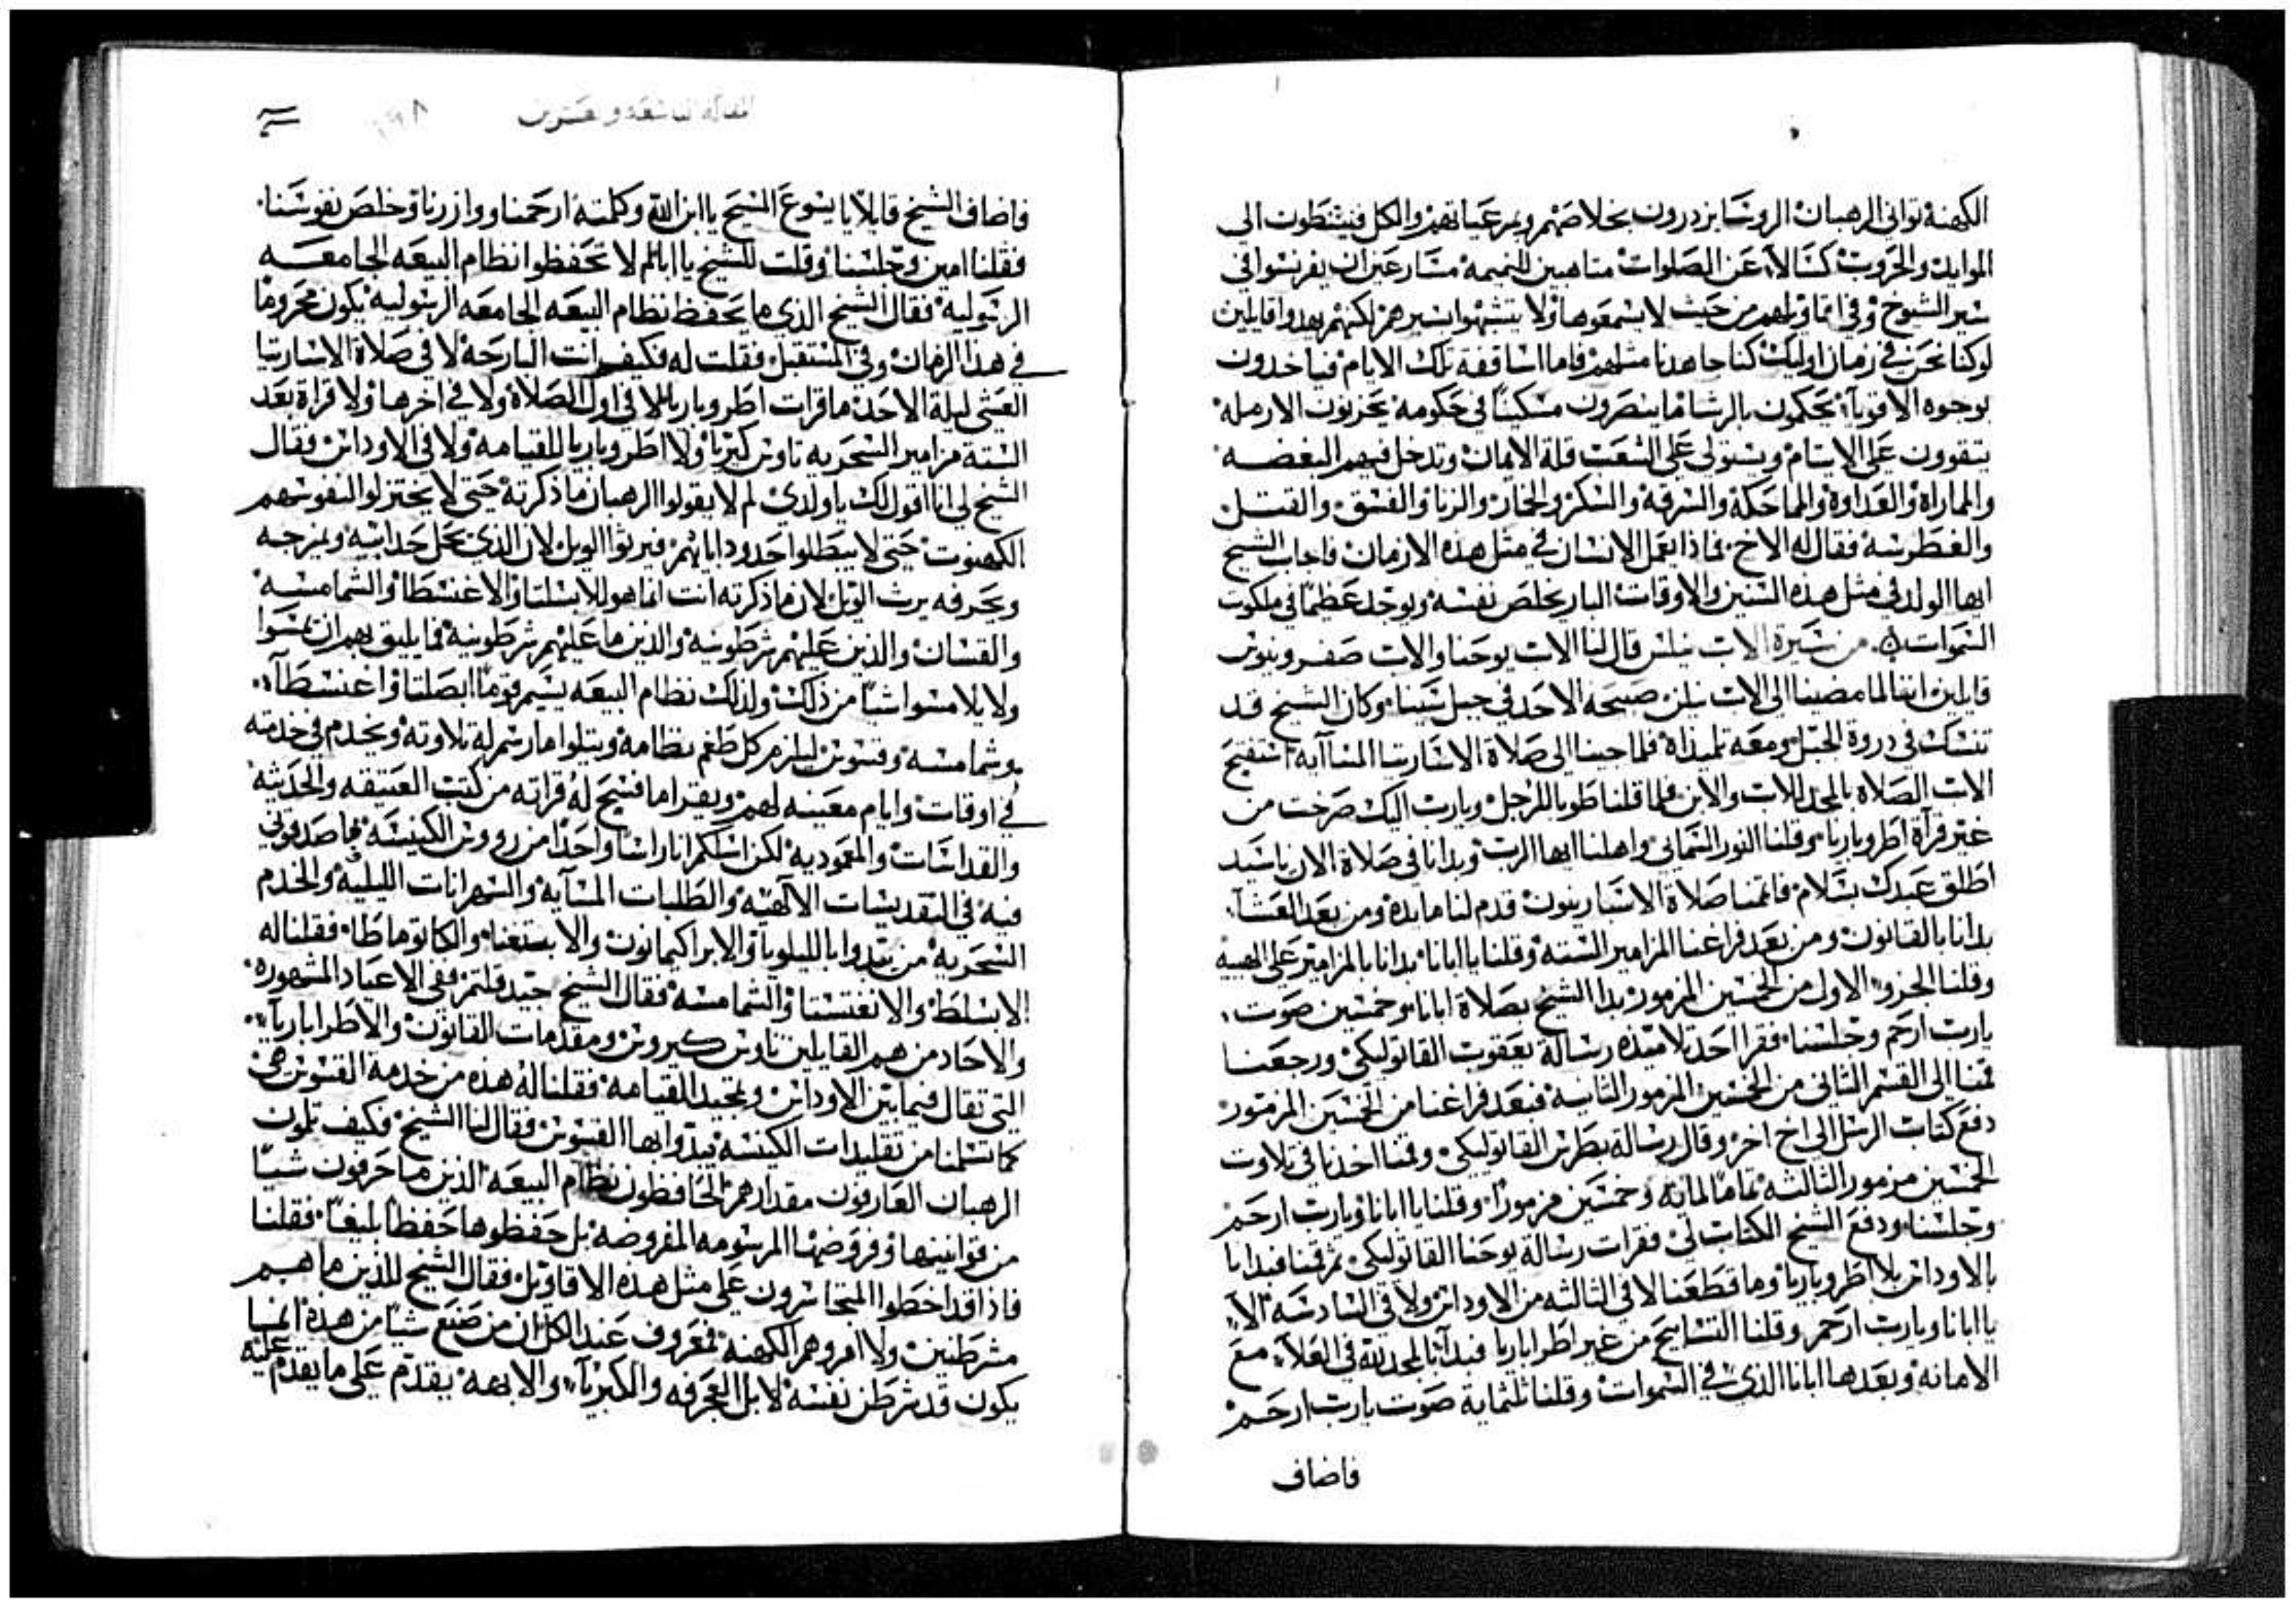 الكهنة تواني الرهبان الروسا يزدرون بخلاصهم وبرعياتهم والكل فينشطون الي
الموايد والحروب كسالاء عن الصلوات متاهبين للنميمة مسارعين ان يفرنسوا في
سير الشيوخ وفي اقاويلهم من حيث لا يسمعوها ولا يتشبهوا بسيرهم لكنهم يهدوا قايلين
لو كنا نحن في زمان اوليك كنا جاهدنا مثلهم فاما اساقفة تلك الايام فياخدون
بوجوه الاقوياء يحكمون بالرشا ما ينصرون مسكينا في حكومه يحزنون الارمله
يتقوون علي الايتام ويستولي علي الشعب قلة الامان وتدخل فيهم البغضه
والمماراة والعداوة والمماحكة والسرقة والسكر والخمار والزنا والفسق والقتل
والغطرسه فقال له الاخ فماذا يعمل الانسان في مثل هذه الازمان فاجاب الشيخ
ايها الولد في مثل هذه السنين والاوقات البار يخلص نفسه ويوجد عظيما في ملكوت
السموات من سيرة الاب نيلس قال لنا الاب يوحنا والاب صفرونيوس
قايلين اننا لما مضينا الي الاب نيلس صبيحة الاحد في جبل سينا وكان الشيخ قد
تنسك في دروة الجبل ومعه تلميذاه فلما جينا الي صلاة الاسارينا المسآايه استفتح
الاب الصلاه بالمجد للاب والابن ولما قلنا طوبا للرجل ويارب اليك صرخت من
غير قرآة اطروباريا وقلنا النور السماني واهلنا ايها الرب وبدانا في صلاة الان ياسيد
اطلق عبدك بسلام فاتممنا صلاة الاسبارينون قدم لنا مايده ومن بعد العشآ
بدانا بالقانون ومن بعد فراغنا المزامير الستة وقلنا يا ابانا بدانا بالمزامير علي الهينه
وقلنا الجزو الاول من الخمسين المزمور بدا الشيخ بصلاة ابانا وخمسين صوت
يارب ارحم وجلسنا فقرا احد تلاميذه رسالة يعقوب القاتوليكي ورجعنا
قمنا الي القسم الثاني من الخمسين المزمور الثانيه فبعد فراغنا من الخمسين المزمور
دفع كتاب الرسل الي اخ اخر وقال رسالة بطرس القاتوليكي وقمنا اخذنا في تلاوت
الخمسين مزمور الثالثه تماما لمايه وخمسين مزمورا وقلنا يا ابانا ويارب ارحم
وجلسنا ودفع الشيخ الكتاب لي فقرات رسالة يوحنا القاتوليكي ثم قمنا فبدانا
بالاودانس بلا اطروباريا وما قطعنا لا في الثالثه من الاودانس ولا في السادسه الا
يا ابانا ويارب ارحم وقلنا التسابيح من غير اطراباريا فبدآنا لمجد لله في العلآ مع
الامانه وبعدها ابانا الذي في السموات وقلنا ثلثماية صوت يارب ارحم
فاضاف
المقالة التاسعة وعشرين
فاضاف الشيخ قايلا يا يسوع المسيح يا ابن الله وكلمته ارحمنا ووازرنا وخلص نفوسنا
فقلنا امين وجلسنا وقلت للشيخ يا ابا لم لا تحفظوا نظام البيعه الجامعه
الرسوليه فقال الشيخ الذي ما يحفظ نظام البيعه الجامعه الرسوليه يكون محروما
في هذا الزمان وفي المستقبل فقلت له فكيف انت البارحة لا في صلاة الاسبارينا
العشي ليلة الاحد ما قرات اطروباريا لا في اول الصلاة ولا في اخرها ولا قراة بعد
الستة مزامير السحريه تاوس كيريا ولا اطروباريا للقيامه ولا في الاودانس فقال
الشيخ لي انا اقول لك يا ولدي لم لا يقولوا الرهبان ما ذكرته حتي لا يختزلوا لنفوسهم
الكهنوت حتي لا يبطلوا حدود ابائهم فيرثوا الويل لان الذي يحل حدابيه ويمزجه
ويحرفه يرث الويل لان ما ذكرته انت انما هو للابسلتا والاغنسطا والشمامسه
والقسان والذين عليهم شرطونيه والذين ما عليهم شرطونيه فما يليق بهم ان يمسوا
ولا يلامسوا شيا من ذلك ولذلك نظام البيعه يسيم قوما ابصلتا واغنسطآ
وشمامسه وقسوس ليلزم كل طغم نظامه ويتلوا ما رسم له تلاوته ويخدم في خدمته
في اوقات وايام معينه لهم ويقرا ما فسح له قراته من كتب العتيقه والحديثه
والقداسات والمعموديه لكن اسلكم انا راسا واحدا من رووس الكنيسه بما صد قولي
فيه في التقديسات الالهيه والطلبات المسآيه والسهرانات الليليه والخدم
السحريه من يبتدوا بالليلويا والابراكيمانون والابستغنا والكاتوماطا فقلنا له
الابسلط والاغنسطا والشمامسه فقال الشيخ جيد قلتم ففي الاعياد المشهوره
والاحاد من هم القايلين تاوس كيروس ومقدمات القانون والاطراباريآ
التي تقال فيما بين الاودانس وتمجيد القيامه فقلنا له هذه من خدمة القسوس هي
كما تسلمنا من تقليدات الكنيسه يبدوا بها القسوس فقال لنا الشيخ فكيف تلون
الرهبان العارفون مقدارهم الحافظون نظام البيعه الذين ما حرفون شيا
من قوانينها وفروضها المرسومه المفروضه بل حفظوها حفظا بليغا فقلنا
فاذا قد اخطوا المتجاسرون علي مثل هذه الاقاويل فقال الشيخ للذين ما هم
مشرطنين ولا امروهم الكهنه فمعروف عند الكل ان من صنع شيا من هذه المنسا
يكون قد شرطن نفسه لا بل العجرفه والكبريآ والابهة يقدم علي ما يقدم عليه